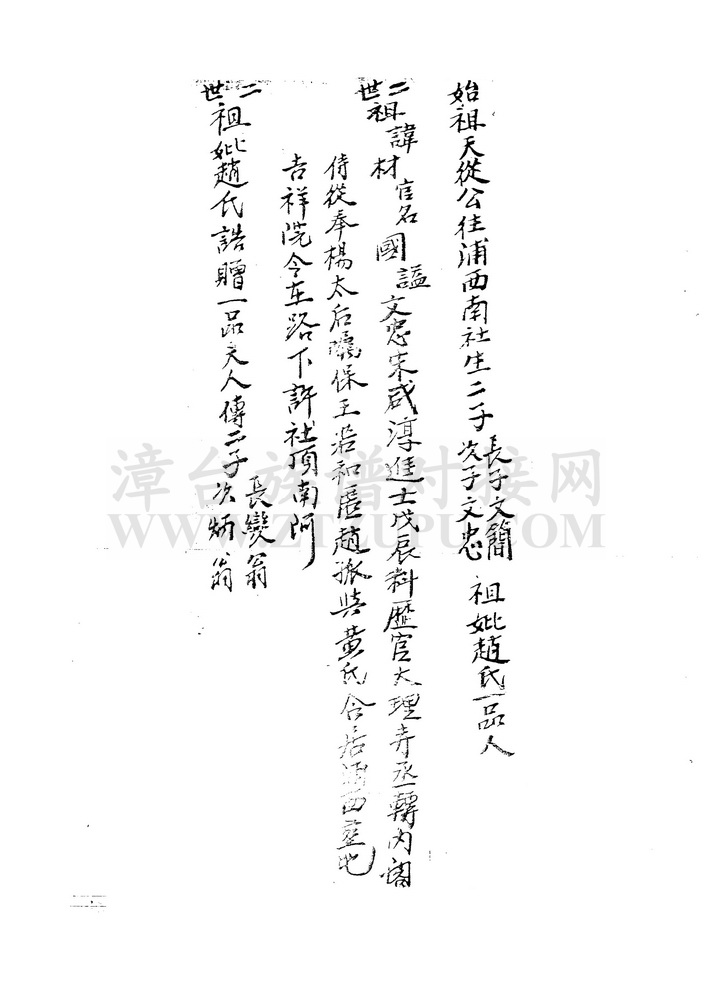 始祖天從公往浦西南社生二子長子文簡次子文忠 祖妣趙氏一品人
二世祖諱材官名國諡文忠宋咸淳進士戊辰科歷官大理寺丞轉內閣
侍從奉楊太后囑保王若和匿趙孤與黃氏合居浦西
吉祥院今在路下許社頂南阿
二世祖妣趙氏誥贈一品夫人傳二子長變翁次炳翁
漳台族谱对接网
WWW.ZTZUPU.COM